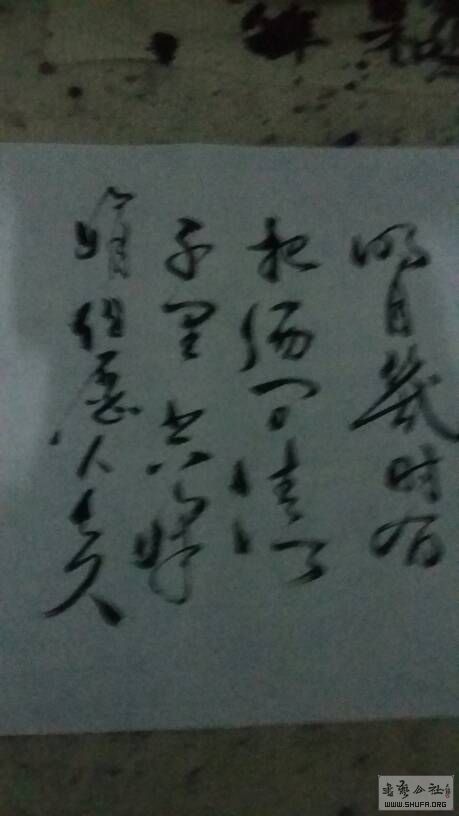 明月幾时有
把酒问天
千里共婵
娟但愿人长久
书艺公社
WWW.SHUFA.ORG